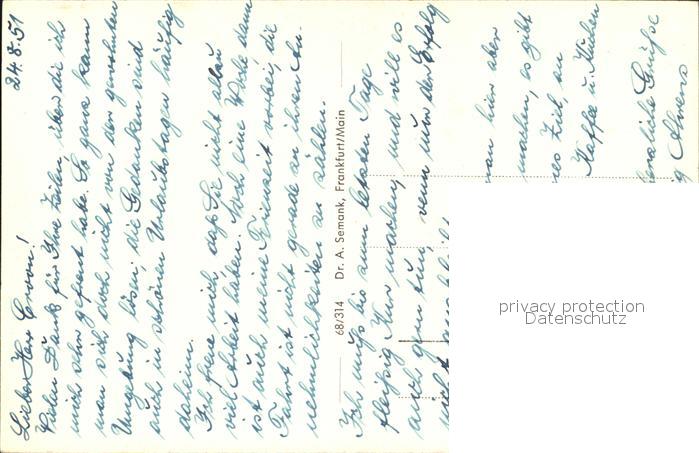 24.8.51
Lieber Herr Croon!
Vielen Dank für Ihre Zeilen, über die ich
mich sehr gefreut habe. So ganz kann
man sich doch nicht von der gewohnten
Umgebung lösen; die Gedanken sind
auch in schönen Urlaubstagen häufig
daheim.
Ich freue mich, daß Sie nicht allzu
viel Arbeit haben. Noch eine Woche dann
ist auch meine Freizeit vorbei, die
Fahrt ist nicht gerade zu ihren An-
nehmlichkeiten zu zählen.
68/314 Dr. A. Semank, Frankfurt/Main
Ich muß bis zum letzten Tage
fleißig Kur machen und will es
auch gern tun, wenn nur der Erfolg
nicht
man hier aber
machen, es gibt
Ziel, an
Kaffee u. Kuchen
herzliche Grüße
privacy protection
Datenschutz